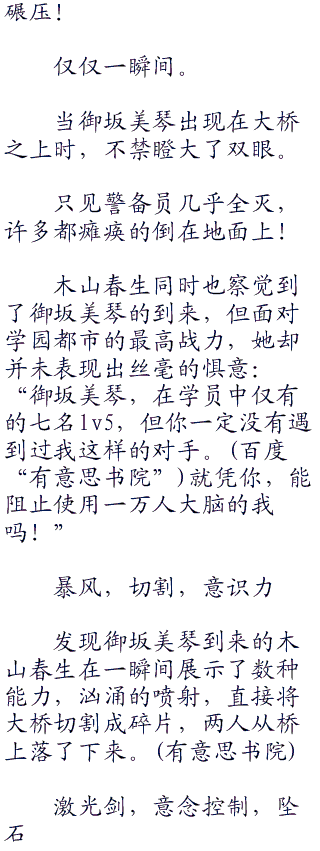 碾压！
仅仅一瞬间。
当御坂美琴出现在大桥
之上时，不禁瞪大了双眼。
只见警备员几乎全灭，
许多都瘫痪的倒在地面上！
木山春生同时也察觉到
了御坂美琴的到来，但面对
学园都市的最高战力，她却
并未表现出丝毫的惧意：
“御坂美琴，在学员中仅有
的七名lv5，但你一定没有遇
到过我这样的对手。(百度
“有意思书院”)就凭你，能
阻止使用一万人大脑的我
吗！”
暴风，切割，意识力
发现御坂美琴到来的木
山春生在一瞬间展示了数种
能力，汹涌的喷射，直接将
大桥切割成碎片，两人从桥
上落了下来。(有意思书院)
激光剑，意念控制，坠
石